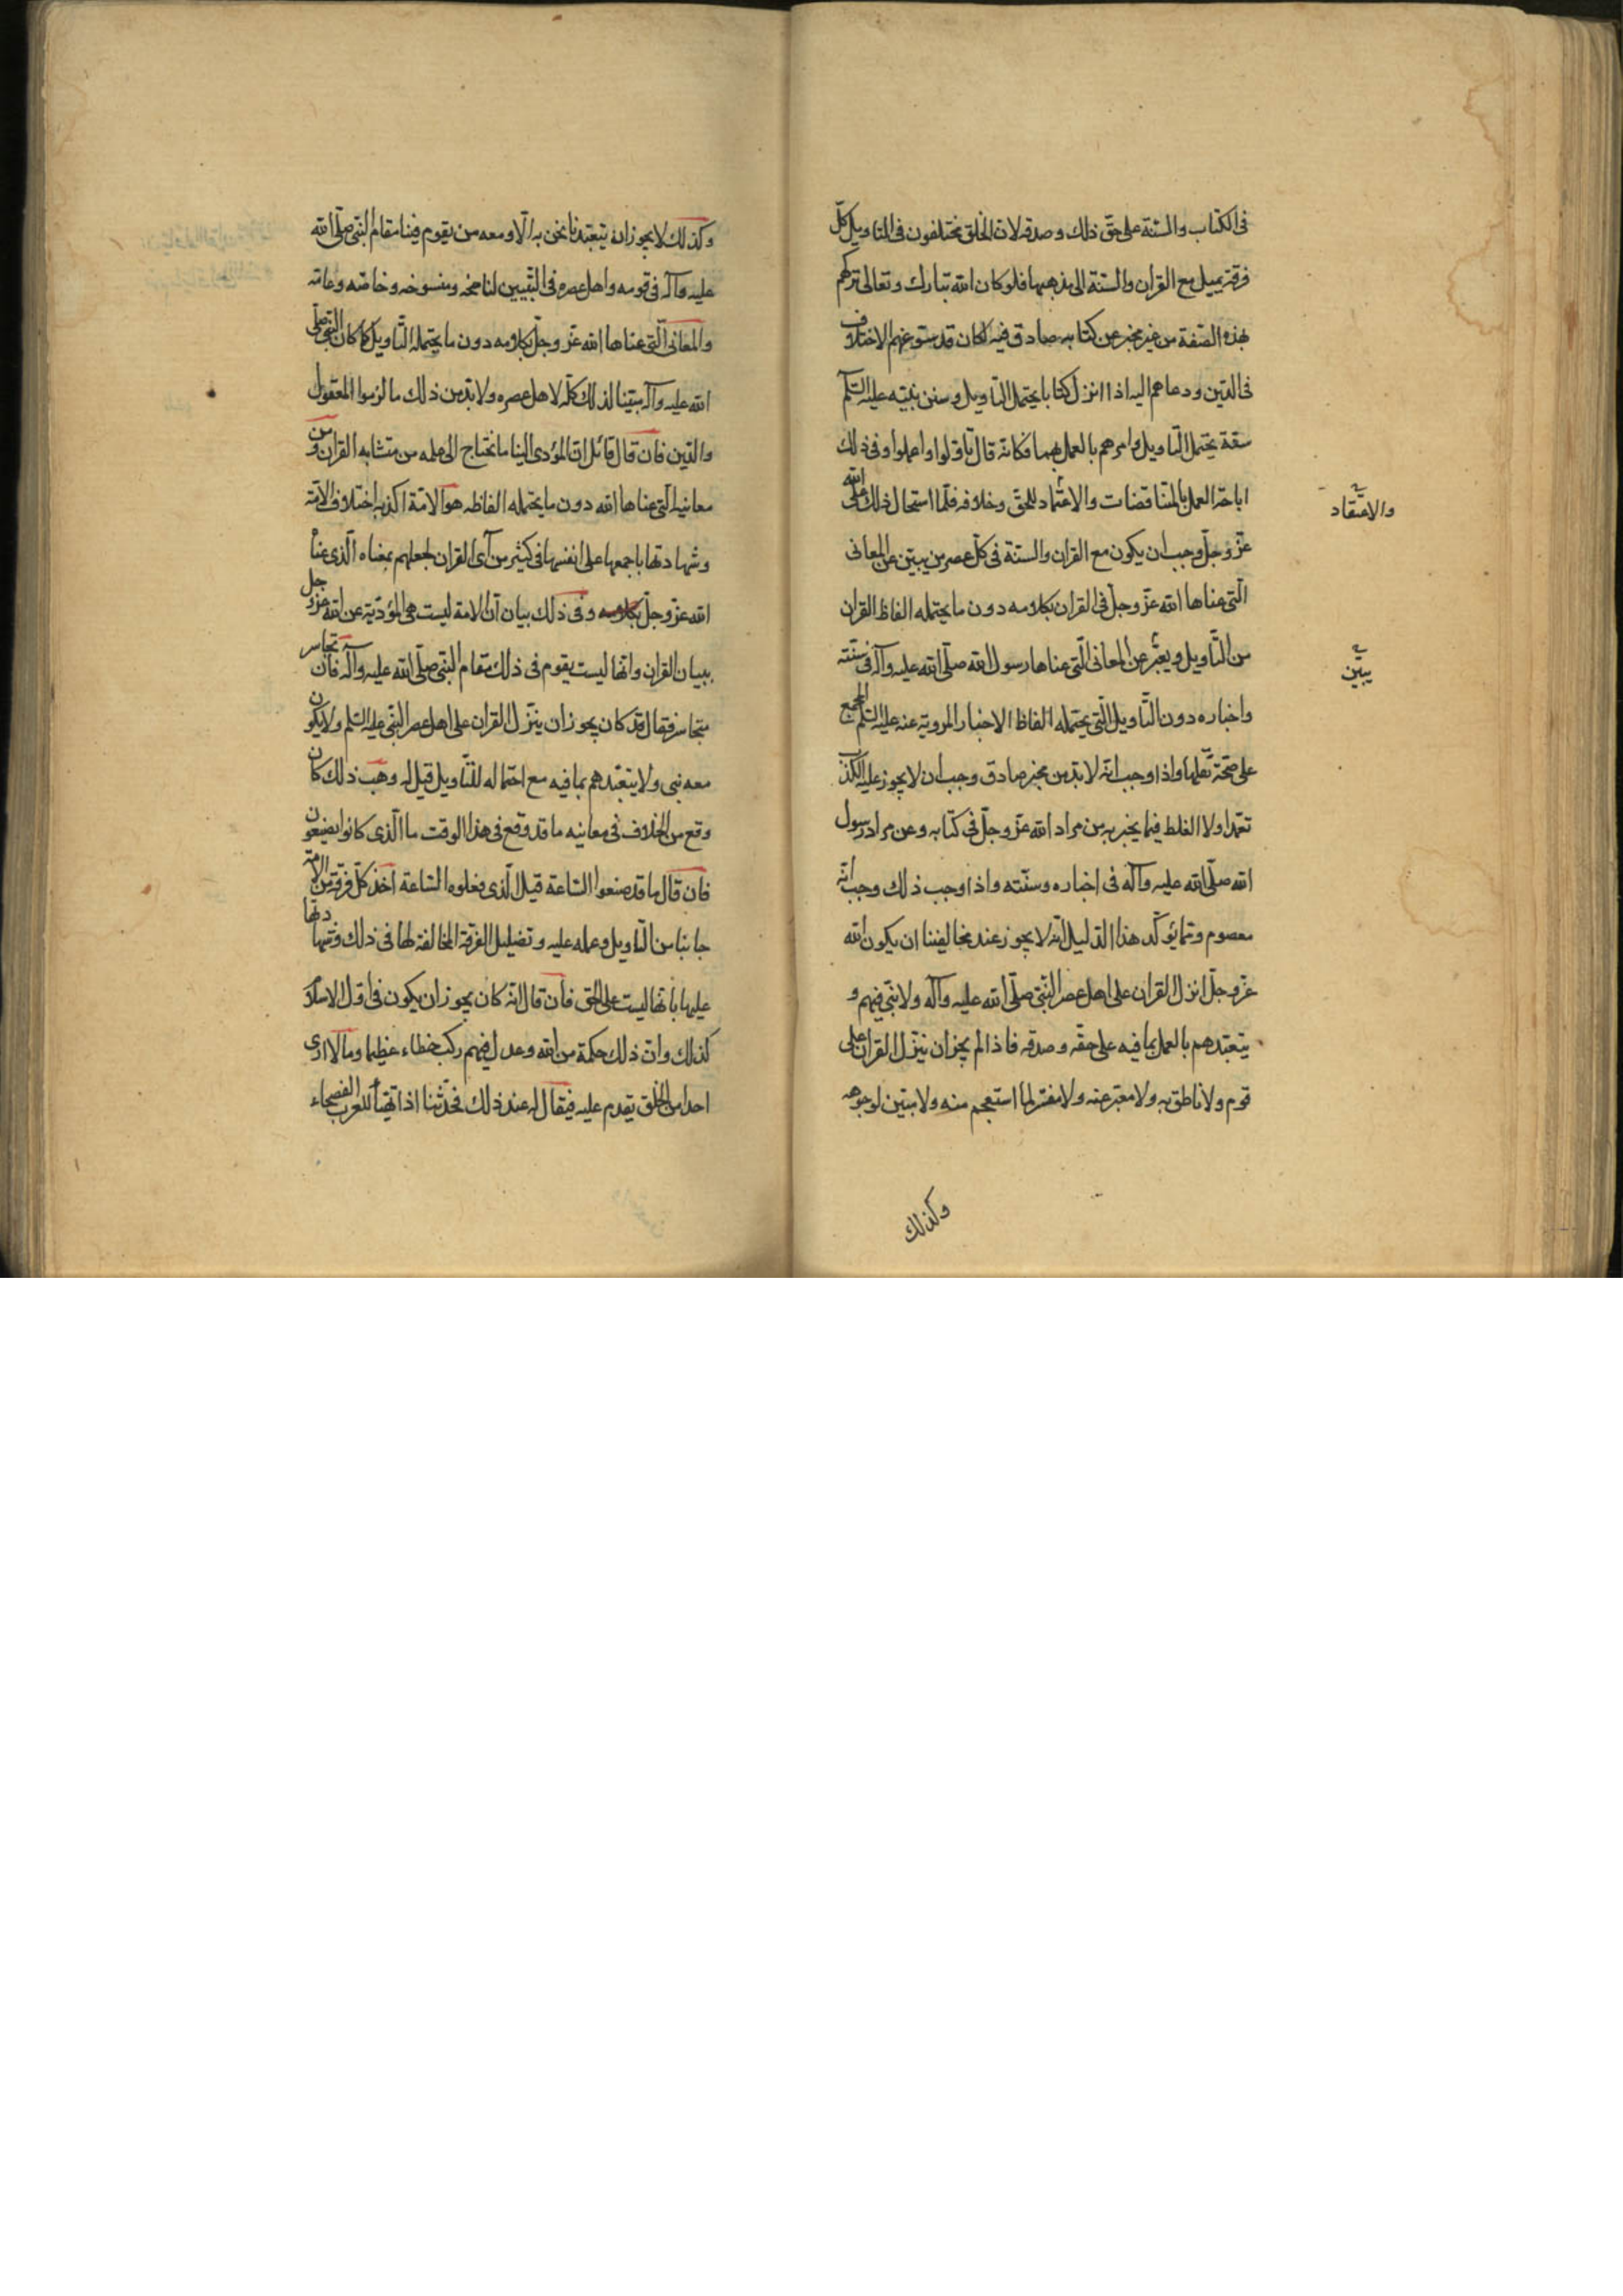 فى الكتاب والسّنة على حق ذلك وصدقه لانّ الخلق مختلفون فى التاويل كلّ
فرقة يميل مع القران والسّنة الى مذهبها فلو كان الله تبارك وتعالى تركهم
بهذه الصّفة من غير مخبر عن كتابه صادق فيه لكان قد سوّغهم الاختلاف
فى الدّين ودعاهم اليه اذا انزل كتابا يحتمل التاويل وسنن نبيّه عليه السّلام
سنّة يحتمل التاويل وامرهم بالعمل بهما فكانّه قال تاوّلوا واعملوا وفى ذلك
اباحة العمل بالمتناقضات والاعتماد للحقّ وخلافه فلمّا استحال ذلك على الله
والاعتقاد
عزّ وجلّ وجب ان يكون مع القران والسنة فى كلّ عصر من يبيّن عن المعانى
الّتى عناها الله عزّ وجلّ فى القران بكلامه دون ما يحتمله الفاظ القران
من التّاويل ويعبّر عن المعانى الّتى عناها رسول الله صلّى الله عليه وآله فى سننه
يبيّن
واخباره دون التّاويل الّتى يحتمله الفاظ الاخبار المروية عنه عليه السّلم المجمع
على صحّة نقلها واذا وجب انّه لا بدّ من مخبر صادق وجب ان لا يجوز عليه الكذب
تعمّدا ولا الغلط فيما يخبر به من مراد الله عزّ وجلّ فى كتابه وعن مراد رسول
الله صلّى الله عليه وآله فى اخباره وسنّته واذا وجب ذلك وجب انّه
معصوم وممّا يؤكّد هذا الدّليل انّه لا يجوز عند مخالفينا ان يكون الله
عزّ وجلّ انزل القران على اهل عصر النّبى صلّى الله عليه وآله ولا نبّى فيهم و
يتعبّدهم بالعمل بما فيه على حقّه وصدقه فاذا لم يجز ان ينزّل القران على
قوم ولا ناطق به ولا معبّر عنه ولا مفسّر لما استعجم منه ولا مبيّن لوجوهه
وكذلك
وكذلك لا يجوز ان يتعبّد نا نحن به الّا ومعه من يقوم فينا مقام النّبى صلّى الله
عليه وآله فى قومه واهل عصره فى التّبيين لناسخه ومنسوخه وخاصّه وعامّه
والمعانى الّتى عناها الله عزّ وجلّ بكلامه دون ما يحتمله التّاويل كما كان النّبى صلّى
الله عليه وآله مبيّنا لذلك كلّه لاهل عصره ولا بدّ من ذلك ما لزموا المعقول
والدّين فان قال قائل انّ المؤدى الينا ما نحتاج الى علمه من متشابه القران و من
معانيه الّتى عناها الله دون ما يحتمله الفاظه هو الامّة اكذبه اختلاف الامّة
وشهادتها باجمعها على انفسها فى كثير من آى القران لجهلهم بمعناه الّذى عناه
الله عزّ وجلّ بكلامه وفى ذلك بيان انّ الامة ليست هى المؤدّية عن الله عزّ وجل
ببيان القران وانّها ليست يقوم فى ذلك مقام النّبى صلّى الله عليه وآله فان تجاسر
متجاسر فقال قد كان يجوز ان ينزّل القران على اهل عصر النّبى عليه السّلم ولا يكون
معه نبى ولا يتعبّدهم بما فيه مع احتماله للتّاويل قيل له وهب ذلك كان
وقع من الخلاف فى معانيه ما قد وقع فى هذا الوقت ما الّذى كانوا يصنعون
فان قال ما قد صنعوا السّاعة قيل الّذى فعلوه السّاعة اخذ كلّ فرقة من الامّة
جانبا من التاويل وعمله عليه وتضليل الفرقة المخالفة لها فى ذلك وشهادتها
عليها بانّها ليست على الحق فان قال انّه كان يجوز ان يكون فى اوّل الاسلام
كذلك وانّ ذلك حكمة من الله وعدل فيهم ركب خطاء عظيما وما لا ارى
احدا من الخلق يقدم عليه فيقال له عند ذلك فحدّثنا اذا تهيّأ للعرب الفصحاء